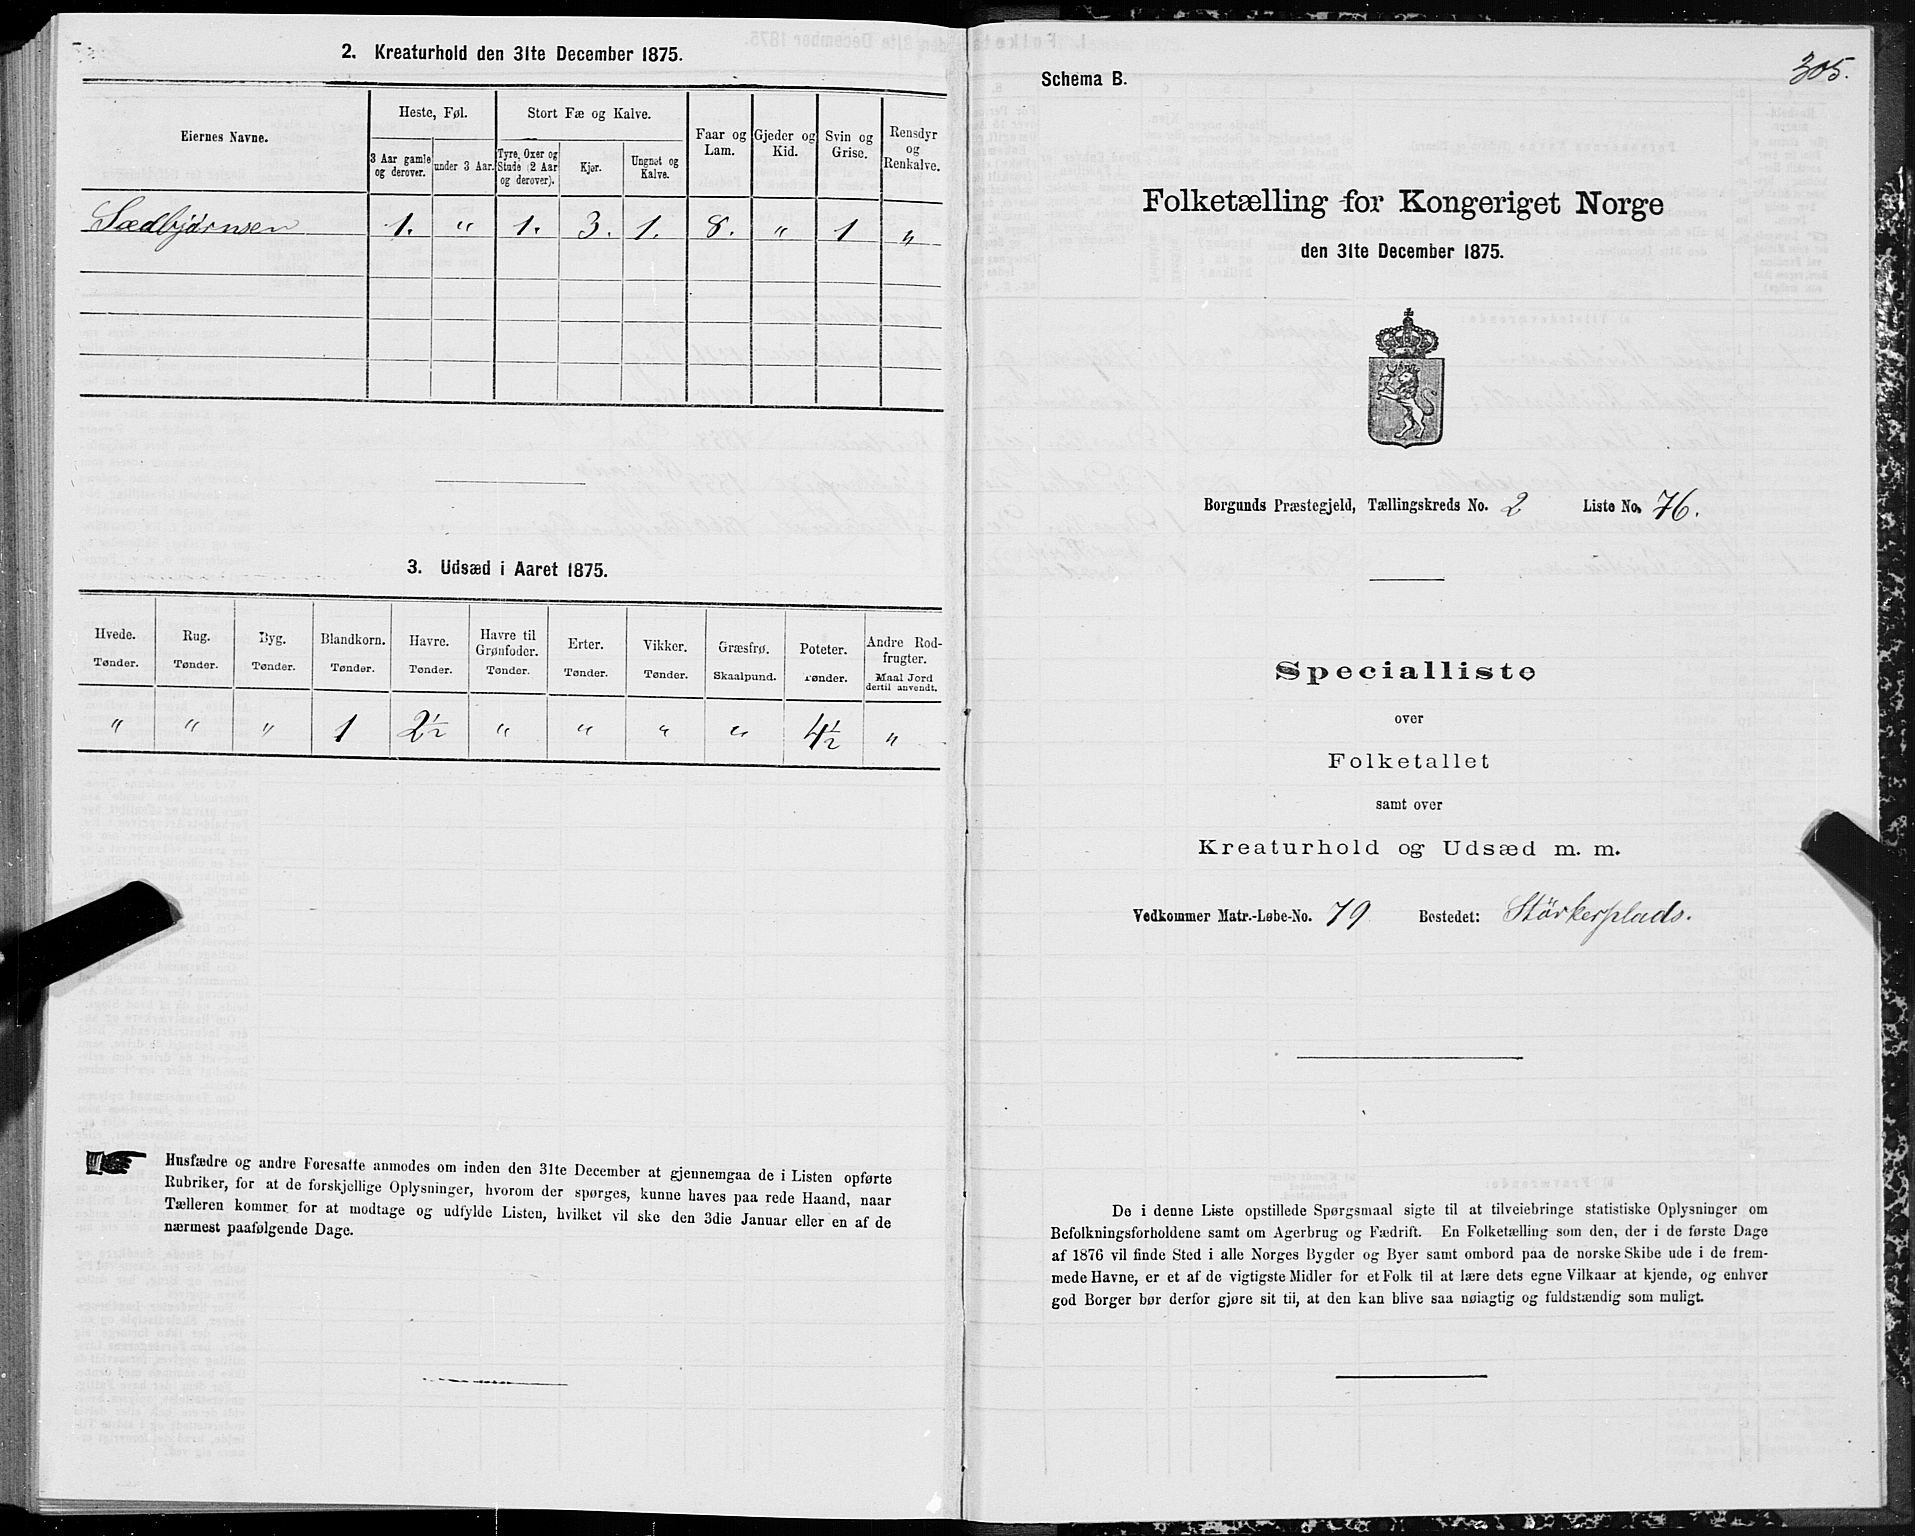 2. Kreaturhold den 31te December 1875.
Eiernes Navne.
Heste, Føl.
Stort Fæ og Kalve.
Faar og Lam.
Gjeder og Kid.
Svin og Grise.
Rensdyr og Renkalve.
3 Aar gamle og derover.
under 3 Aar.
Tyre, Oxer og Stude (2 Aar og derover).
Kjør.
Ungnøt og Kalve.
Sædbjørnsen 1. " 1. 3. 1. 8. " 1 "
3. Udsæd i Aaret 1875.
Hvede. Rug. Byg. Blandkorn. Havre. Havre til Grønfoder. Erter. Vikker. Græsfrø. Poteter. Andre Rodfrugter.
Tønder. Tønder. Tønder. Tønder. Tønder. Tønder. Tønder. Tønder. Skaalpund. Tønder. Maal Jord dertil anvendt.
" " " 1 2½ " " " " 4½ "
Husfædre og andre Foresatte anmodes om inden den 31te December at gjennemgaa de i Listen opførte
Rubriker, for at de forskjellige Oplysninger, hvorom der spørges, kunne haves paa rede Haand, naar
Tælleren kommer for at modtage og udfylde Listen, hvilket vil ske den 3die Januar eller en af de
nærmest paafølgende Dage.
305.
Schema B.
Folketælling for Kongeriget Norge
den 31te December 1875.
Borgunds Præstegjeld, Tællingskreds No. 2 Liste No. 76.
Specialliste
over
Folketallet
samt over
Kreaturhold og Udsæd m. m.
Vedkommer Matr.-Løbe-No. 79 Bostedet: Störkerplads.
De i denne Liste opstillede Spørgsmaal sigte til at tilveiebringe statistiske Oplysninger om
Befolkningsforholdene samt om Agerbrug og Fædrift. En Folketælling som den, der i de første Dage
af 1876 vil finde Sted i alle Norges Bygder og Byer samt ombord paa de norske Skibe ude i de frem-
mede Havne, er et af de vigtigste Midler for et Folk til at lære dets egne Vilkaar at kjende, og enhver
god Borger bør derfor gjøre sit til, at den kan blive saa nøiagtig og fuldstændig som muligt.